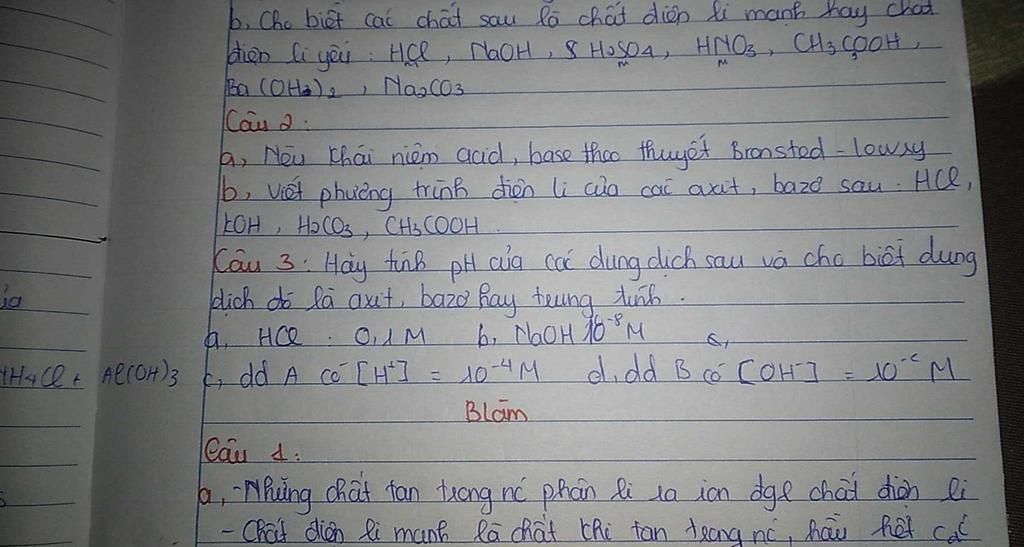 b, Cho biết các chất sau là chất điện li mạnh hay chất
điện li yếu : HCl, NaOH, H2SO4, HNO3, CH3COOH,
Ba(OH)2, Na2CO3
Câu 2:
a, Nêu khái niệm acid, base theo thuyết Bronsted - lowry
b, Viết phương trình điện li của các axit, bazơ sau : HCl,
KOH, H2CO3, CH3COOH.
Câu 3: Hãy tính pH của các dung dịch sau và cho biết dung
dịch đó là axit, bazơ hay trung tính.
a, HCl : 0,1M b, NaOH 10⁻⁸M c,
c, dd A có [H⁺] = 10⁻⁴M d, dd B có [OH⁻] = M
Al(OH)3
Blàm
Câu 1:
a, - Những chất tan trong nc phân li ra ion đgl chất điện li
- Chất điện li mạnh là chất khi tan trong nc, hầu hết các